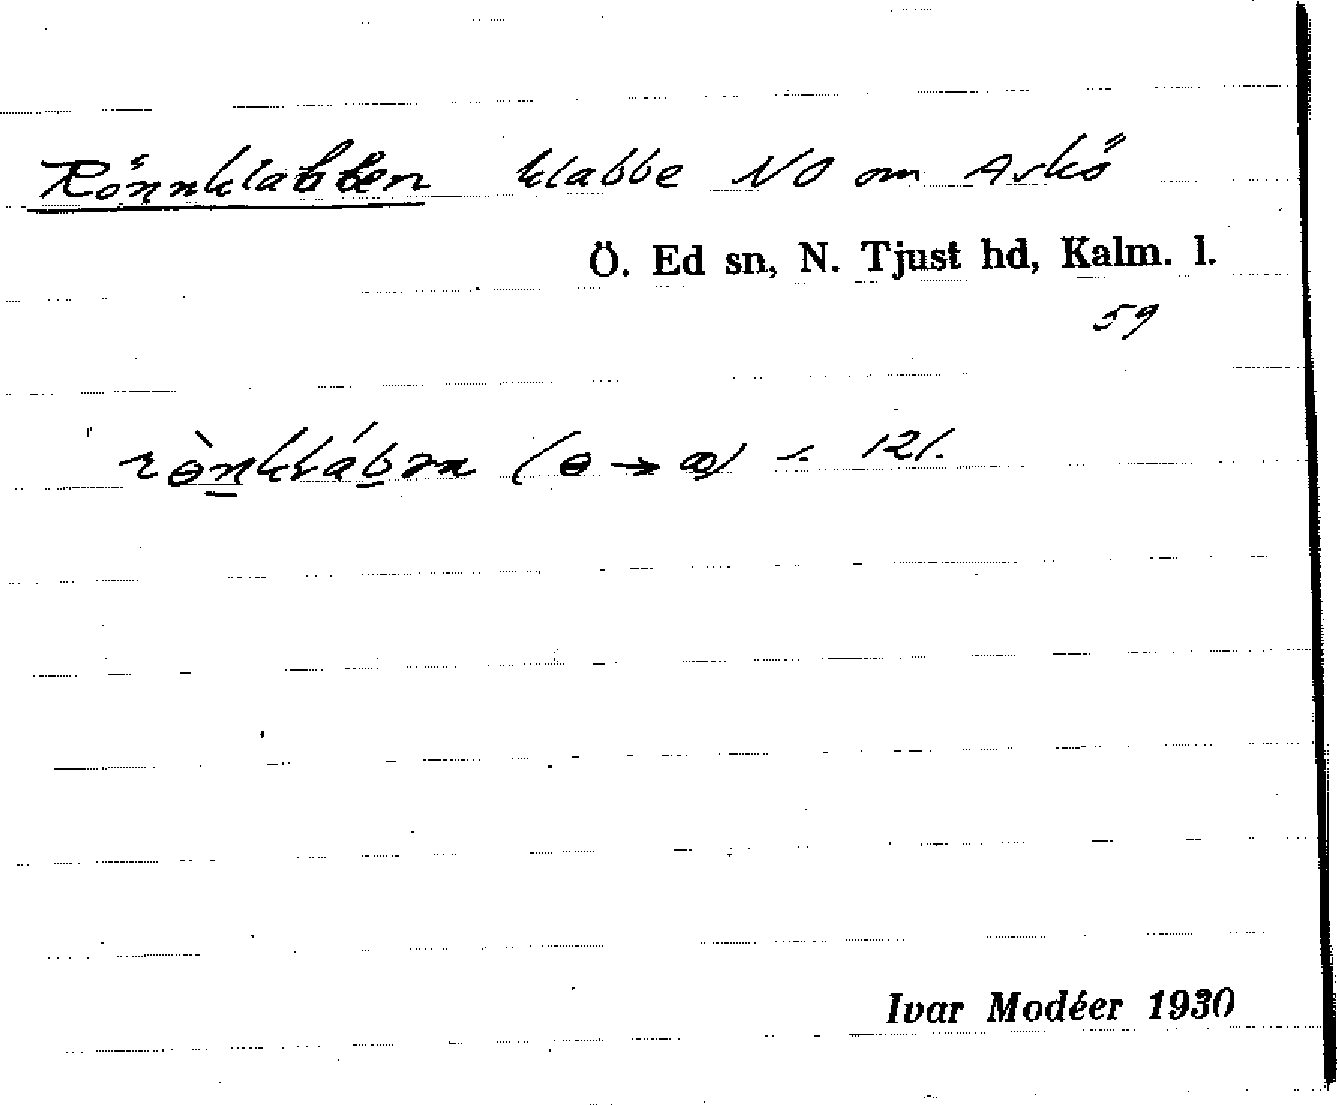 Rönnklabben klabbe NO om Askö
Ö. Ed sn, N. Tjust hd, Kalm. l.
59
(ɵ → œ) s. 121.
Ivar Modéer 1930